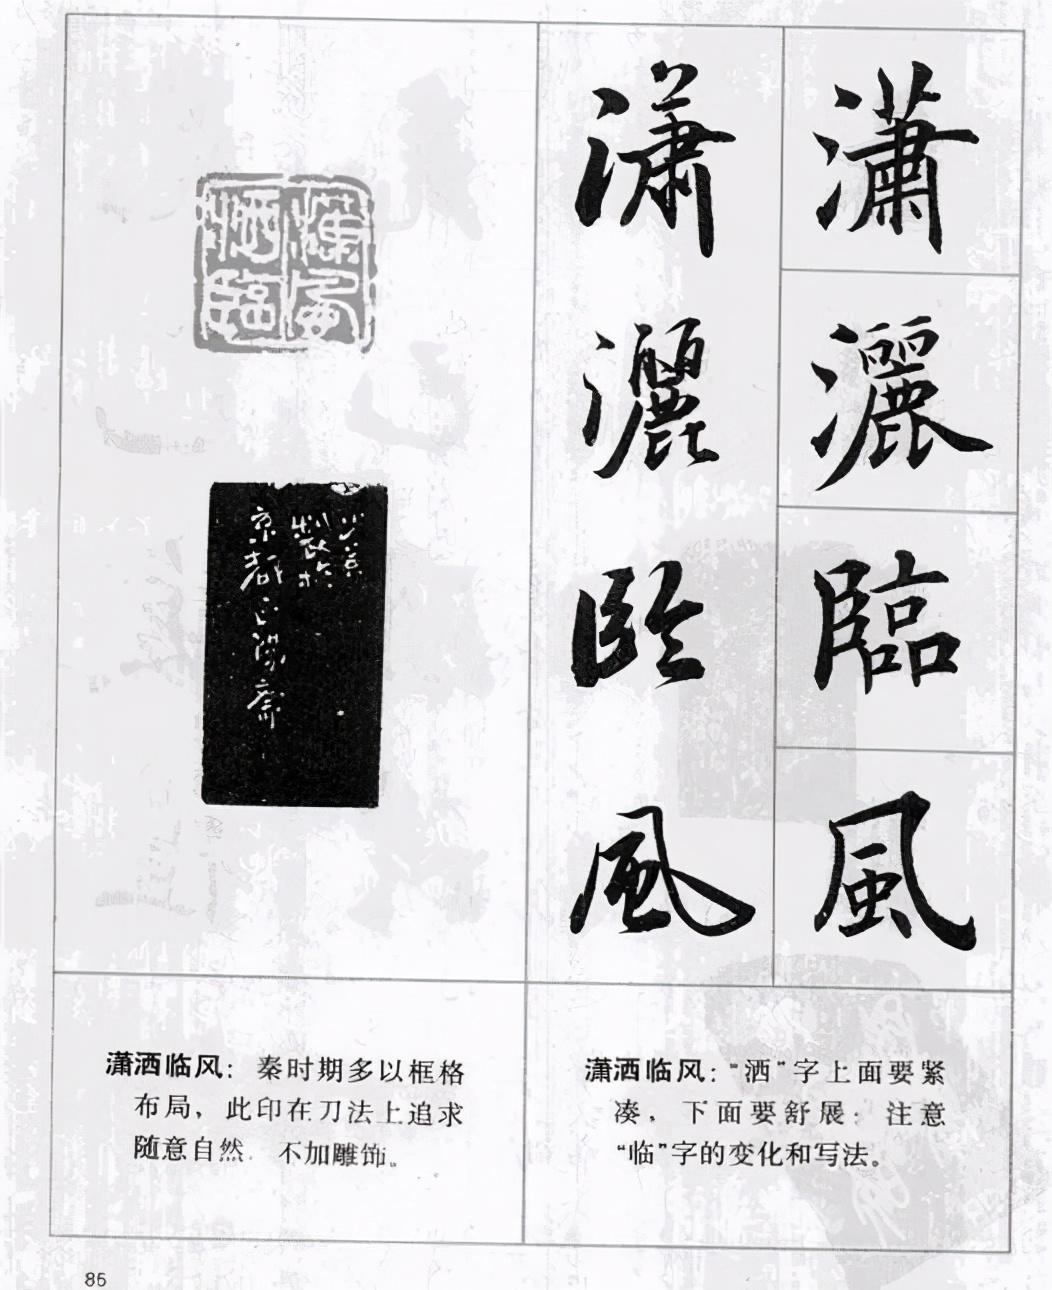 瀟灑臨風
瀟灑臨風
潇洒临风：秦时期多以框格
布局，此印在刀法上追求
随意自然．不加雕饰。
潇洒临风：“洒”字上面要紧
凑，下面要舒展；注意
“临”字的变化和写法。
85